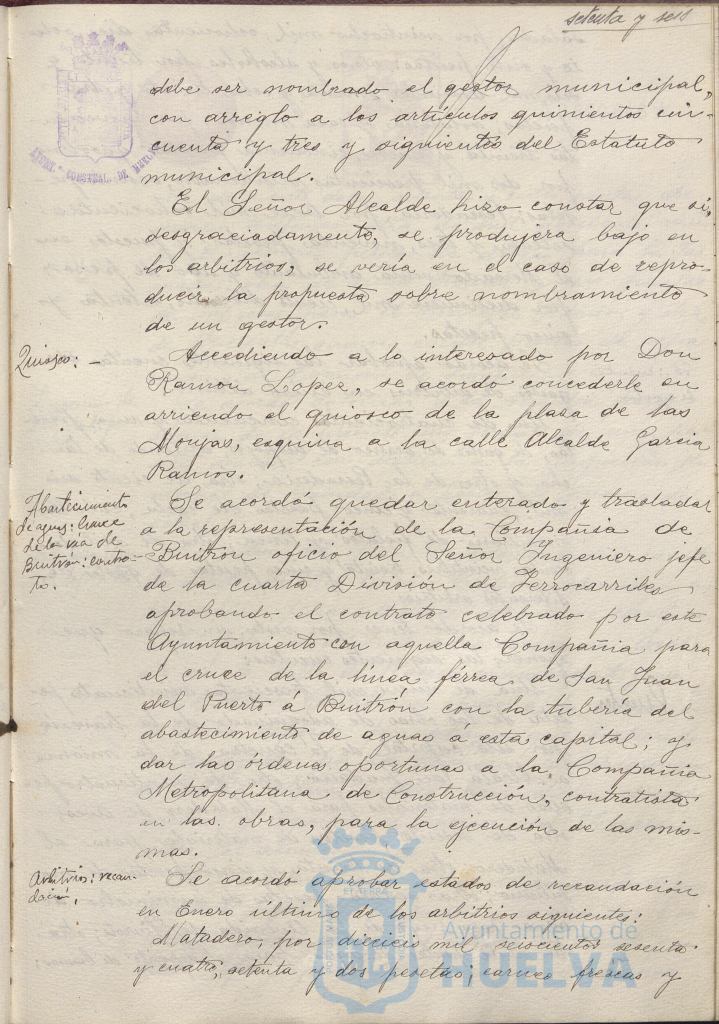 setenta y seis
debe ser nombrado el gestor municipal,
con arreglo a los artículos quinientos cin-
cuenta y tres y siguientes del Estatuto
municipal.
El Señor Alcalde hizo constar que si,
desgraciadamente, se produjera baja en
los arbitrios, se vería en el caso de repro-
ducir la propuesta sobre nombramiento
de un gestor.
Quiosco: -
Accediendo a lo interesado por Don
Ramon Lopez, se acordó concederle en
arriendo el quiosco de la plaza de las
Monjas, esquina a la calle Alcalde Garcia
Ramos.
Abastecimiento
de aguas: Cruce
de la vía de
Buitrón: contra-
to.
Se acordó quedar enterado y trasladar
a la representación de la Compañia de
Buitron oficio del Señor Ingeniero jefe
de la cuarta División de Ferrocarriles
aprobando el contrato celebrado por este
Ayuntamiento con aquella Compañia para
el cruce de la línea férrea de San Juan
del Puerto á Buitrón con la tubería del
abastecimiento de aguas á esta capital; y
dar las órdenes oportunas a la Compañia
Metropolitana de Construcción, contratista
en las obras, para la ejecución de las mis-
mas.
Arbitrios: recau-
dación.
Se acordó aprobar estados de recaudación
en Enero último de los arbitrios siguientes:
Matadero, por dieciseis mil seiscientas sesenta
y cuatro, setenta y dos pesetas; carnes frescas y
AYUNT.º CONSTNAL. DE HUELVA
Ayuntamiento de
HUELVA